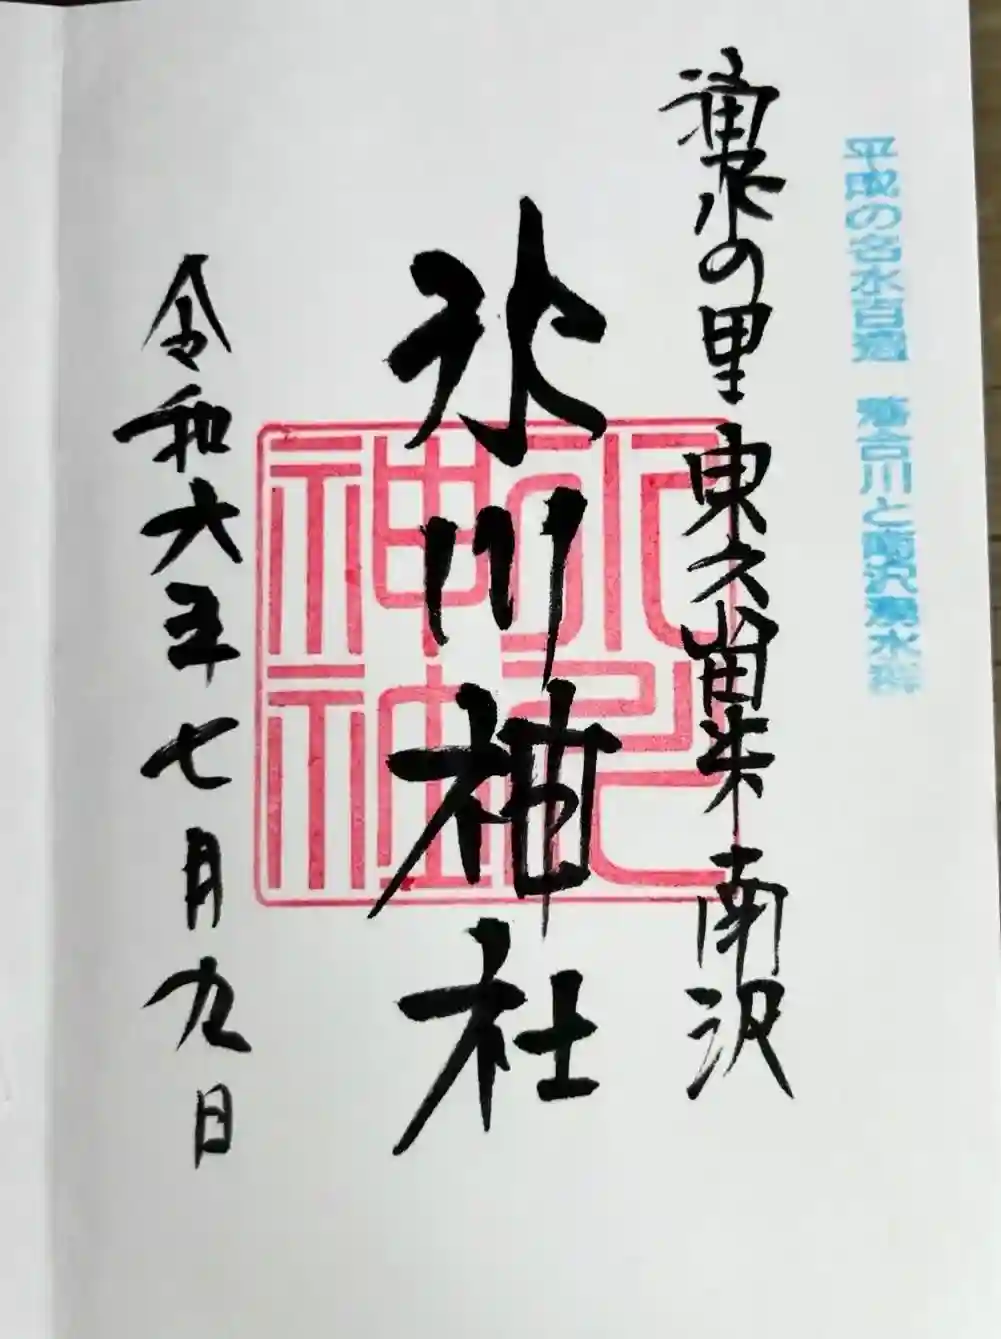 平成の名水百選 落合川と南沢湧水群
湧水の里 東久留米 南沢
氷川神社
氷川神社
令和六年七月九日